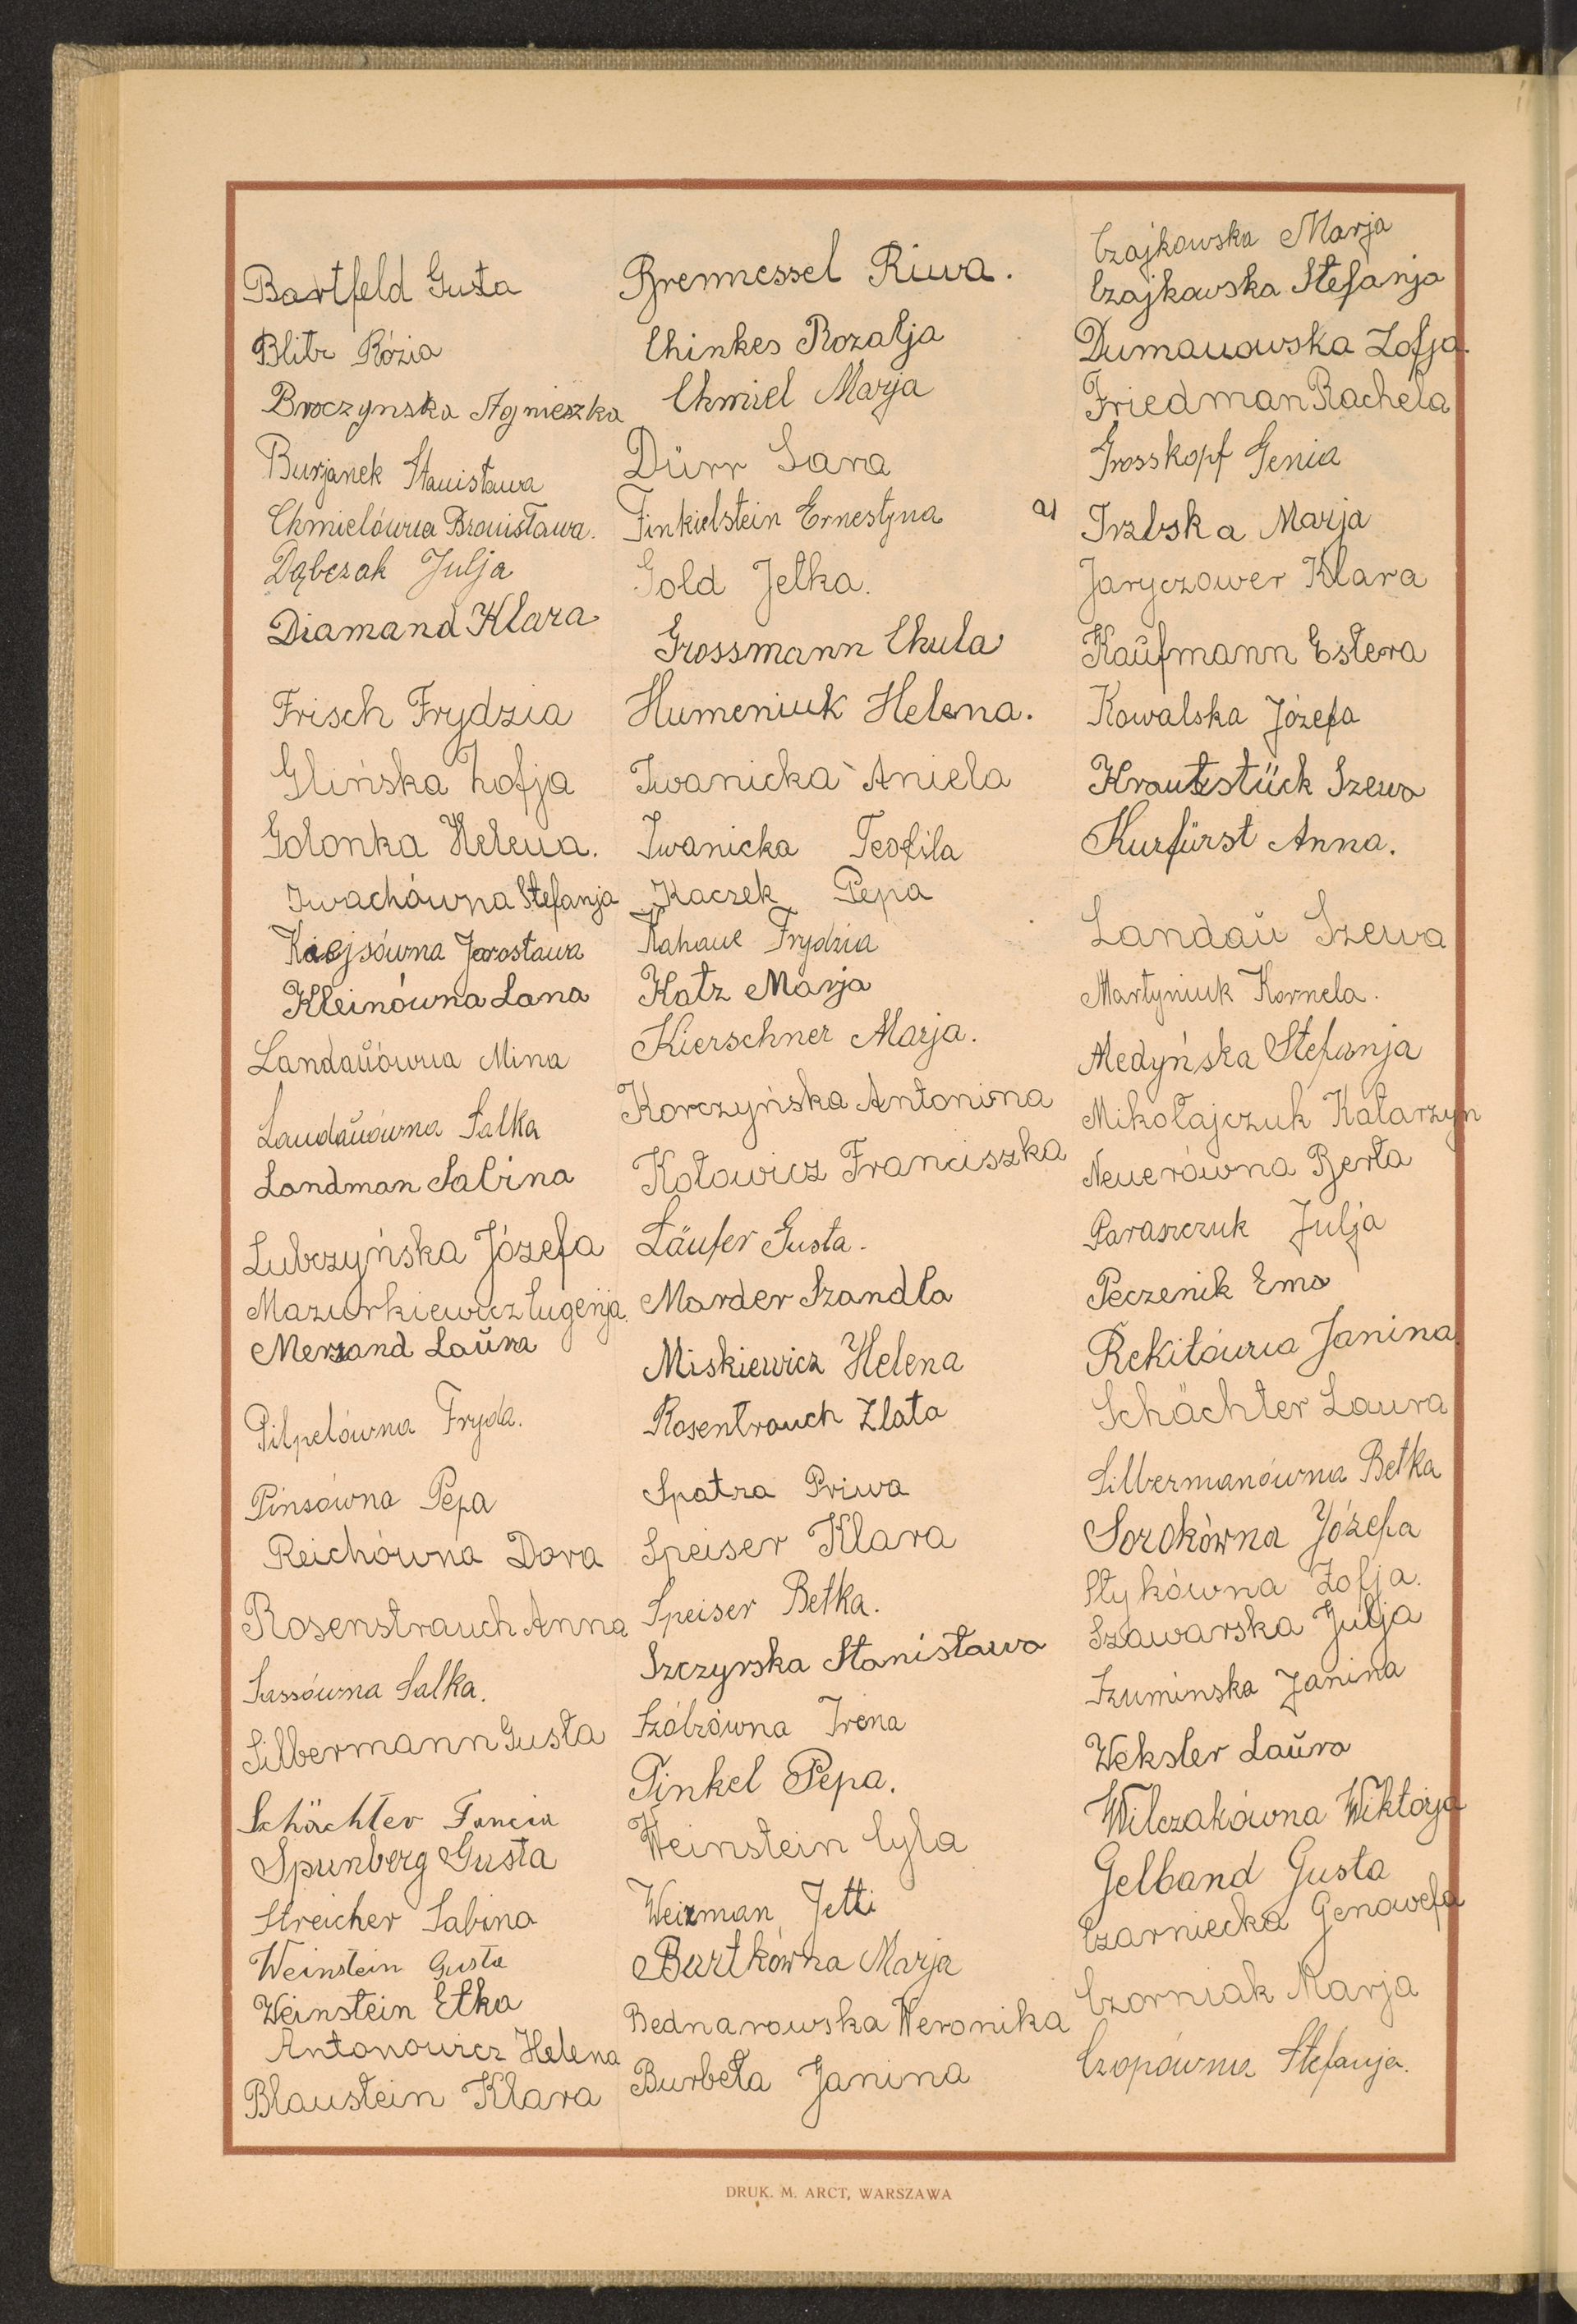 Bartfeld Gusta
Blitz Rózia
Broczynska Agnieszka
Burjanek Stanisława
Chmielówna Bronisława.
Dąbczak Julja
Diamand Klara
Frisch Frydzia
Glińska Zofja
Golonka Helena.
Iwachówna Stefanja
Kiejsówna Jarosława
Kleinówna Lana
Landauówna Mina
Landauówna Salka
Landman Sabina
Lubczyńska Józefa
Mazurkiewicz Eugenja.
Mersand Laura
Pilpelówna Fryda.
Pinsówna Pepa
Reichówna Dora
Rosenstrauch Anna
Sassówna Salka.
Silbermann Gusta
Schächter Fancia
Spunberg Gusta
Streicher Sabina
Weinstein Gusta
Weinstein Etka
Antonowicz Helena
Blaustein Klara
Brennessel Riwa.
Chinkes Rozalja
Chmiel Marja
Dürr Sara
Finkielstein Ernestyna
Gold Jetka.
Grossmann Chula
Humeniuk Helena.
Iwanicka Aniela
Iwanicka Teofila
Kaczek Pepa
Kahane Frydzia
Katz Marja
Kierschner Marja.
Korczyńska Antonina
Kotowicz Franciszka
Läufer Gusta.
Marder Szandla
Miskiewicz Helena
Rosentrauch Zlata
Spatza Priwa
Speiser Klara
Speiser Betka.
Szczyrska Stanisława
Szólzówna Irena
Tinkel Pepa.
Weinstein Cyla
Weizman Jetti
Bartkówna Marja
Bednarowska Weronika
Burbeła Janina
Czajkowska Marja
Czajkowska Stefanja
Dumanowska Zofja.
Friedman Rachela
Grosskopf Genia
Irzbska Marja
Jaryczower Klara
Kaufmann Estera
Kowalska Józefa
Krautstück Szewa
Kurfürst Anna.
Landau Szewa
Martyniuk Kornela.
Medyńska Stefanja
Mikołajczuk Katarzyn
Neuerówna Berta
Paraszczuk Julja
Peczenik Ema
Rekitówna Janina.
Schächter Laura
Silbermanówna Betka
Sorokówna Józefa
Stykówna Zofja.
Szawarska Julja
Szuminska Janina
Weksler Laura
Wilczakówna Wiktorja
Gelband Gusta
Czarniecka Genowefa
Czorniak Marja
Czopówna Stefanja.
DRUK. M. ARCT, WARSZAWA